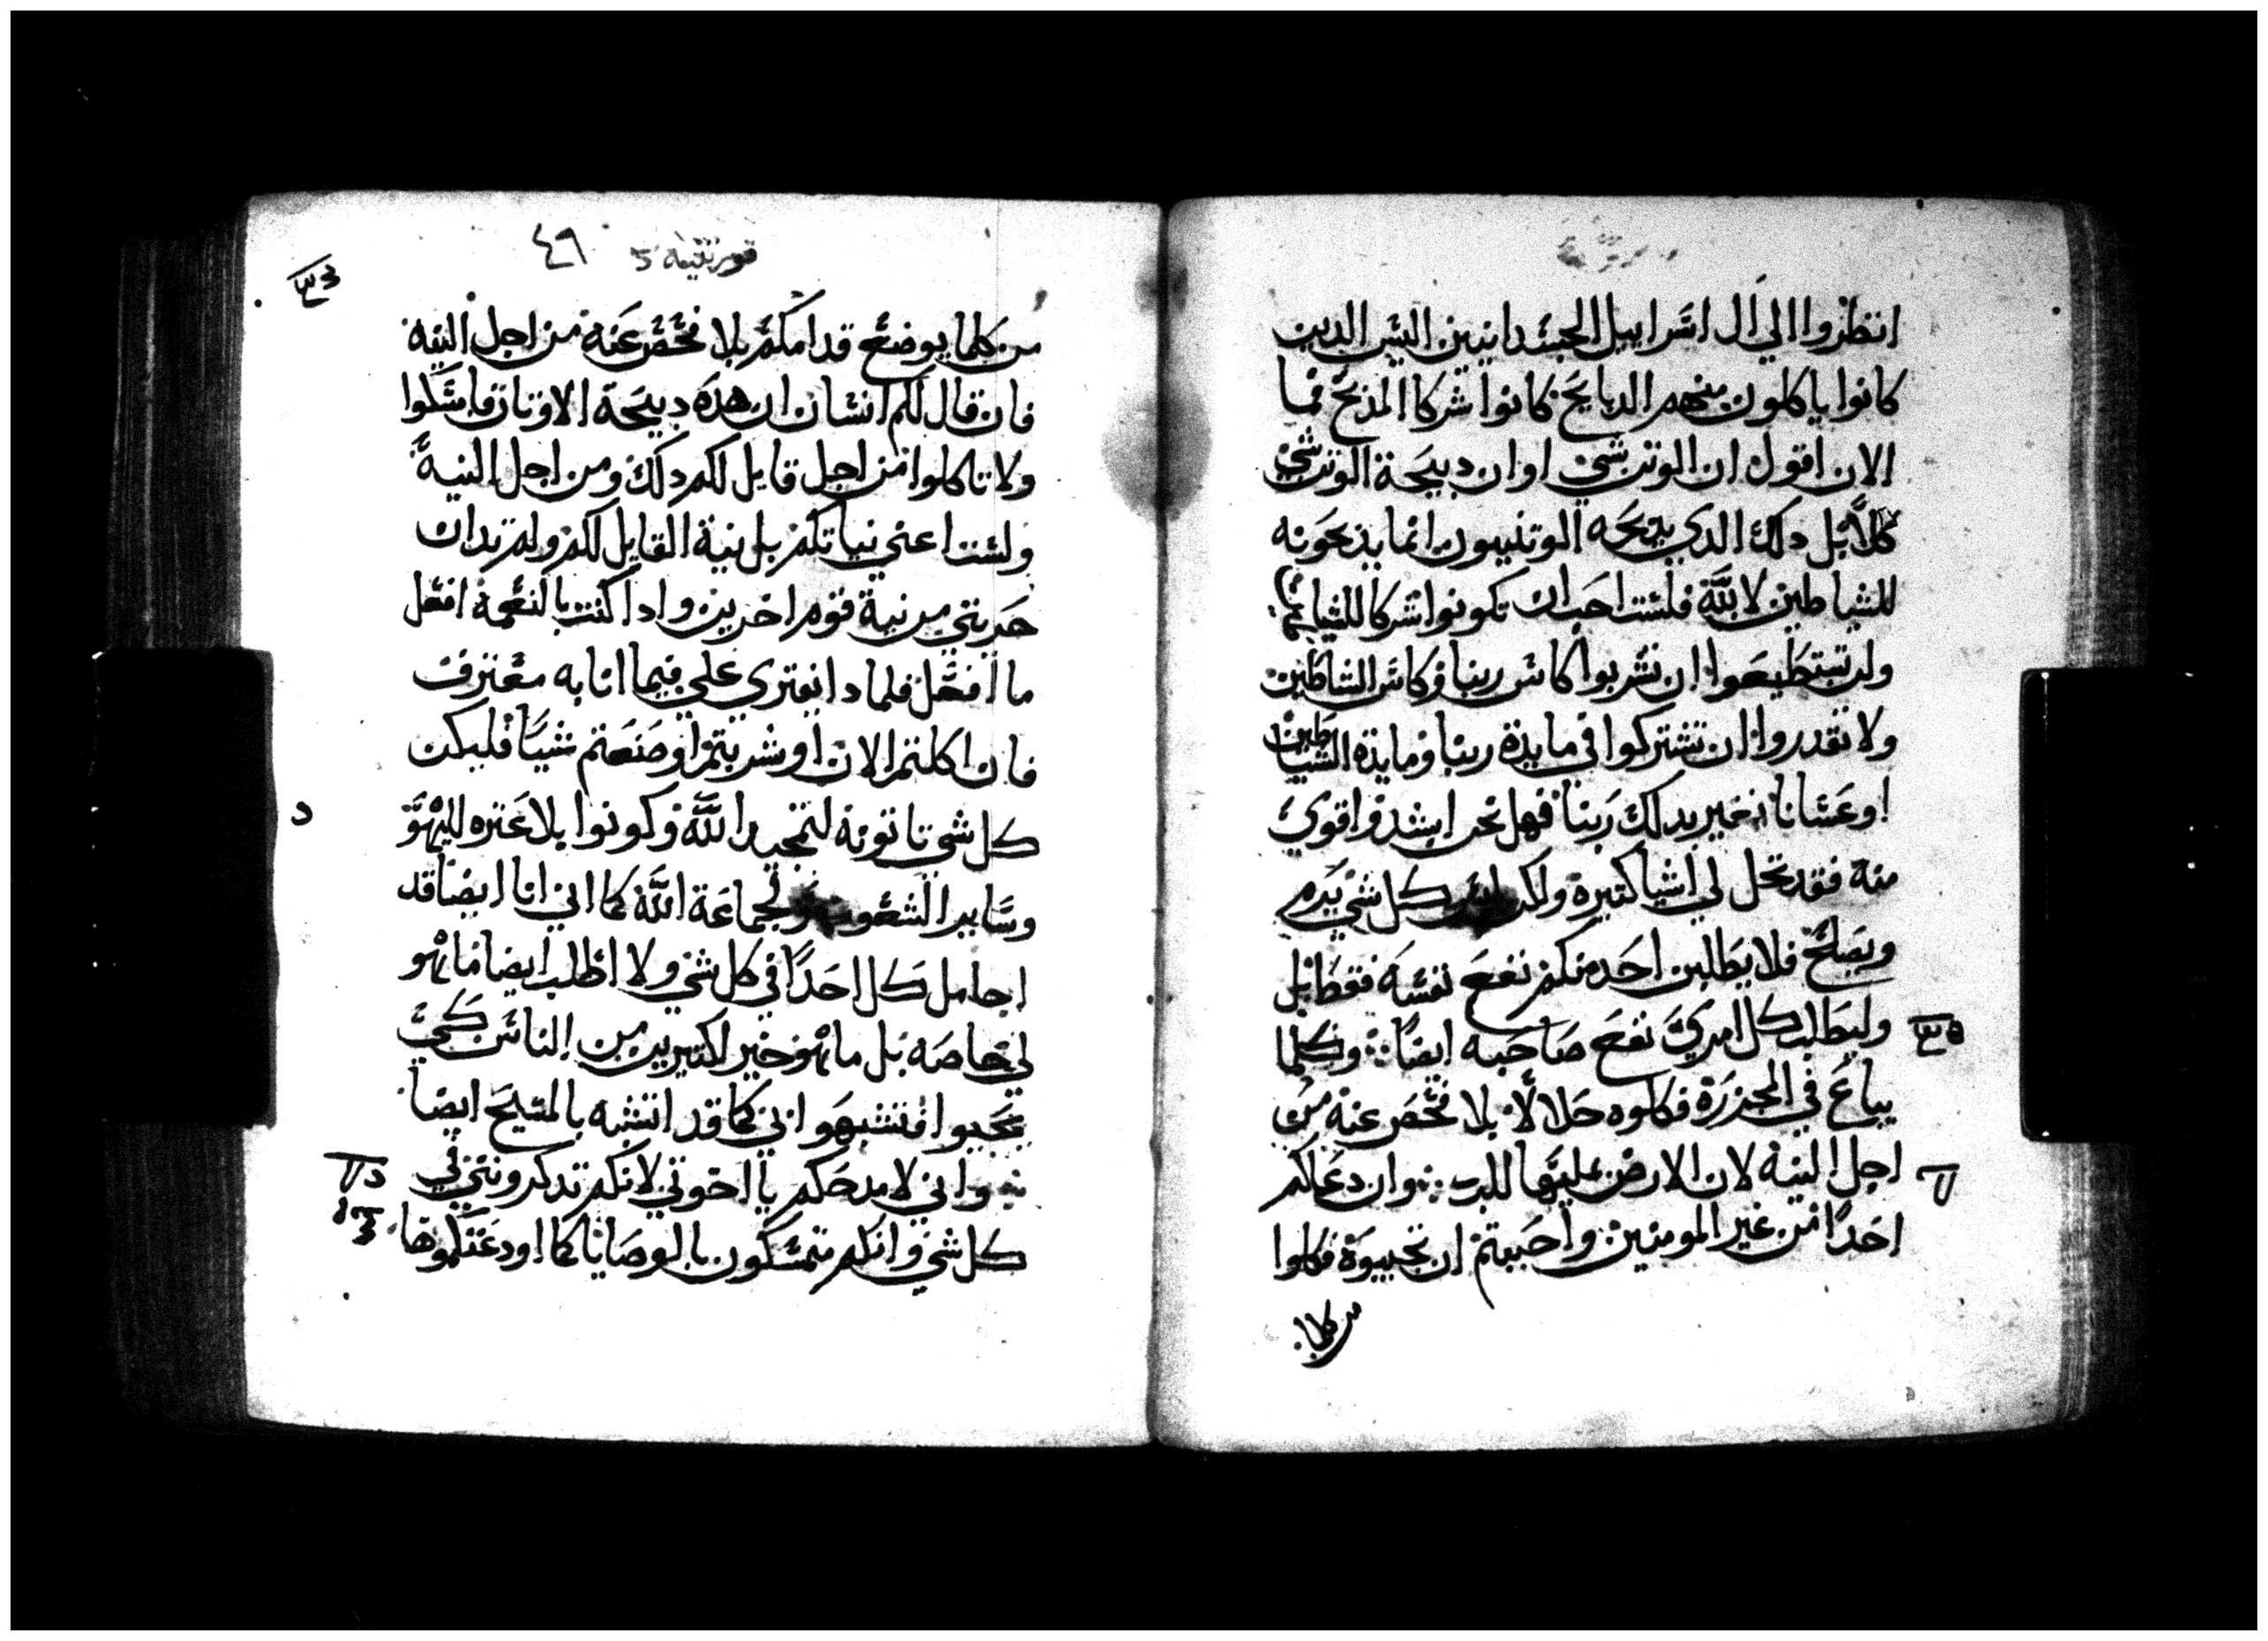 انظروا الي ال اسراييل الجسدانيين اليس الدين
كانوا ياكلون منهم الدبايح كانوا شركا المذبح فما
الان اقول ان الوتن شي اوان دبيحة الوتن شي
كلا بل دلك الدي يدبحه الوتنييون انما يذبحونه
للشياطين لا لله فلست احب ان تكونوا شركا للشياطين
ولن تستطيعوا ان تشربوا كاس ربنا وكاس الشياطين
ولا تقدروا ان تشتركوا في مايدة ربنا ومايدة الشياطين
او عسانا نغير بدلك ربنا فهل نحن اشد واقوي
منه فقد تحل لي اشيا كتيرة ولكن ليس كل شي يدم
ويصلح فلا يطلبن احد منكم نفع نفسه فقط بل
وليطلب كل امري نفع صاحبه ايضا وكلما
يباع في المجزرة فكلوه حلالا بلا فحص عنه من
اجل النية لان الارض بمليها للرب وان دعاكم
احدا من غير المومنين واحببتم ان تجيبوة فكلوا
من كلما
قورنتيه
٤٩
من كلما يوضع قدامكم بلا فحص عنه من اجل النيه
فان قال لكم انسان ان هذه دبيحة الاوتان فامسكوا
ولا تاكلوا من اجل قايل لكم دلك ومن اجل النية
ولست اعني نياتكم بل نية القايل لكم ولم تدان
حريتي من نية قوم اخرين وادا كنت بالنعمة افعل
ما افعل فلمادا يفتري علي فيما انا به معترف
فان اكلتم الان او شربتم او صنعتم شيا فليكن
كل شي تاتونه لتمجيد الله وكونوا بلا عتره لليهود
وساير الشعوب ولجماعة الله كما اني انا ايضا قد
اجامل كل احدا في كل شي ولا اطلب ايضا ما هو
لي خاصه بل ما هو خير لكتيرين من الناس كي
يحيوا فتشبهوا بي كما قد اتشبه بالمسيح ايضا
واني لامدحكم يا اخوتي لانكم تدكرونني في
كل شي وانكم متمسكون بالوصايا كما اودعتكموها